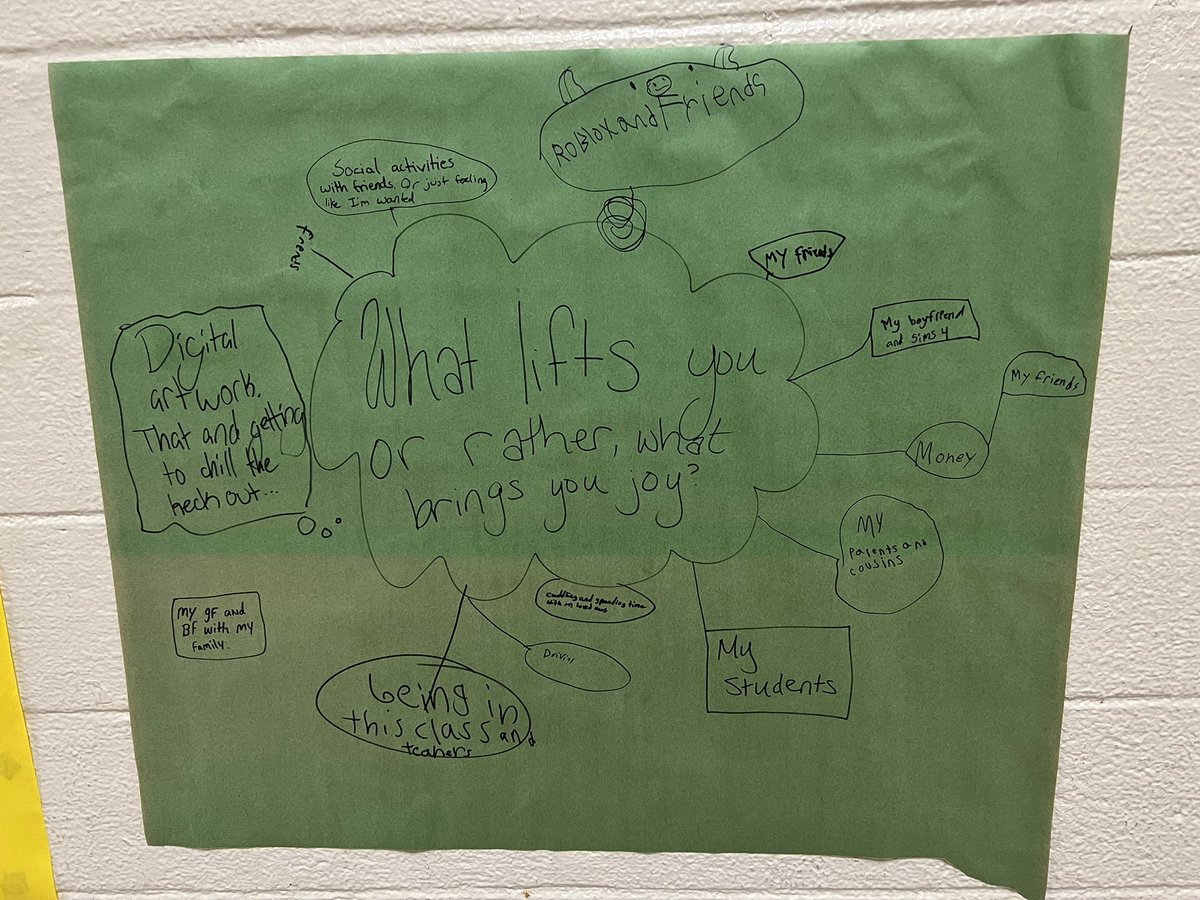 ROBLOX and Friends
Social activities
with friends. Or just feeling
like I'm wanted
MY friends
What lifts you
or rather, what
brings you joy?
My boyfriend
and Sims 4
My friends
Money
Digital
artwork.
That and getting
to chill the
heck out...
MY
Parents and
cousins
My
Students
cuddling and spending time
with
my gf and
BF with my
family.
being in
this class and
teahers